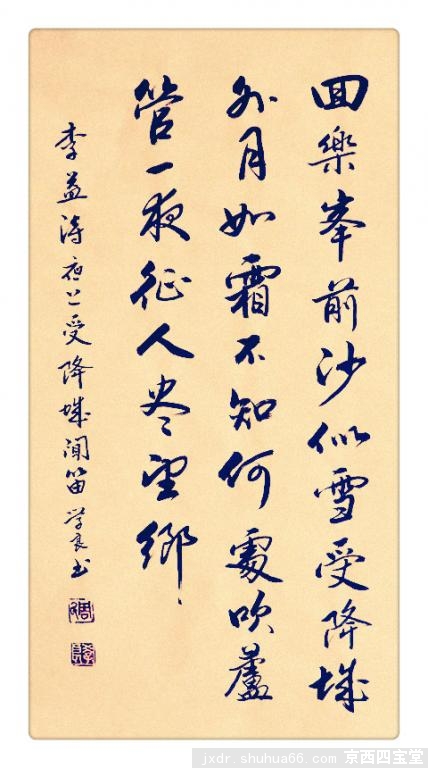 回樂峯前沙似雪受降城
外月如霜不知何處吹蘆
管一夜征人尽望鄉
李益诗夜上受降城闻笛 学良书
jxdr.shuhua66.com 京西四宝堂